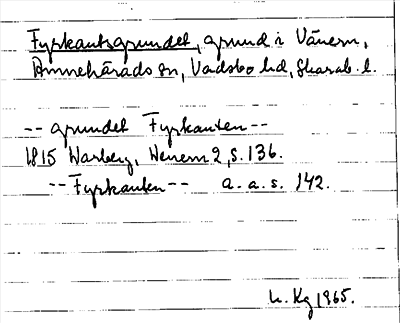 Fyrkantsgrundet, grund i Vänern,
Amnehärads sn, Vadsbo hd, Skarab. l.
-- grundet Fyrkanten --
1815 Warberg, Wenern 2, s. 136.
-- Fyrkanten -- a. a. s. 142.
Kg 1965.